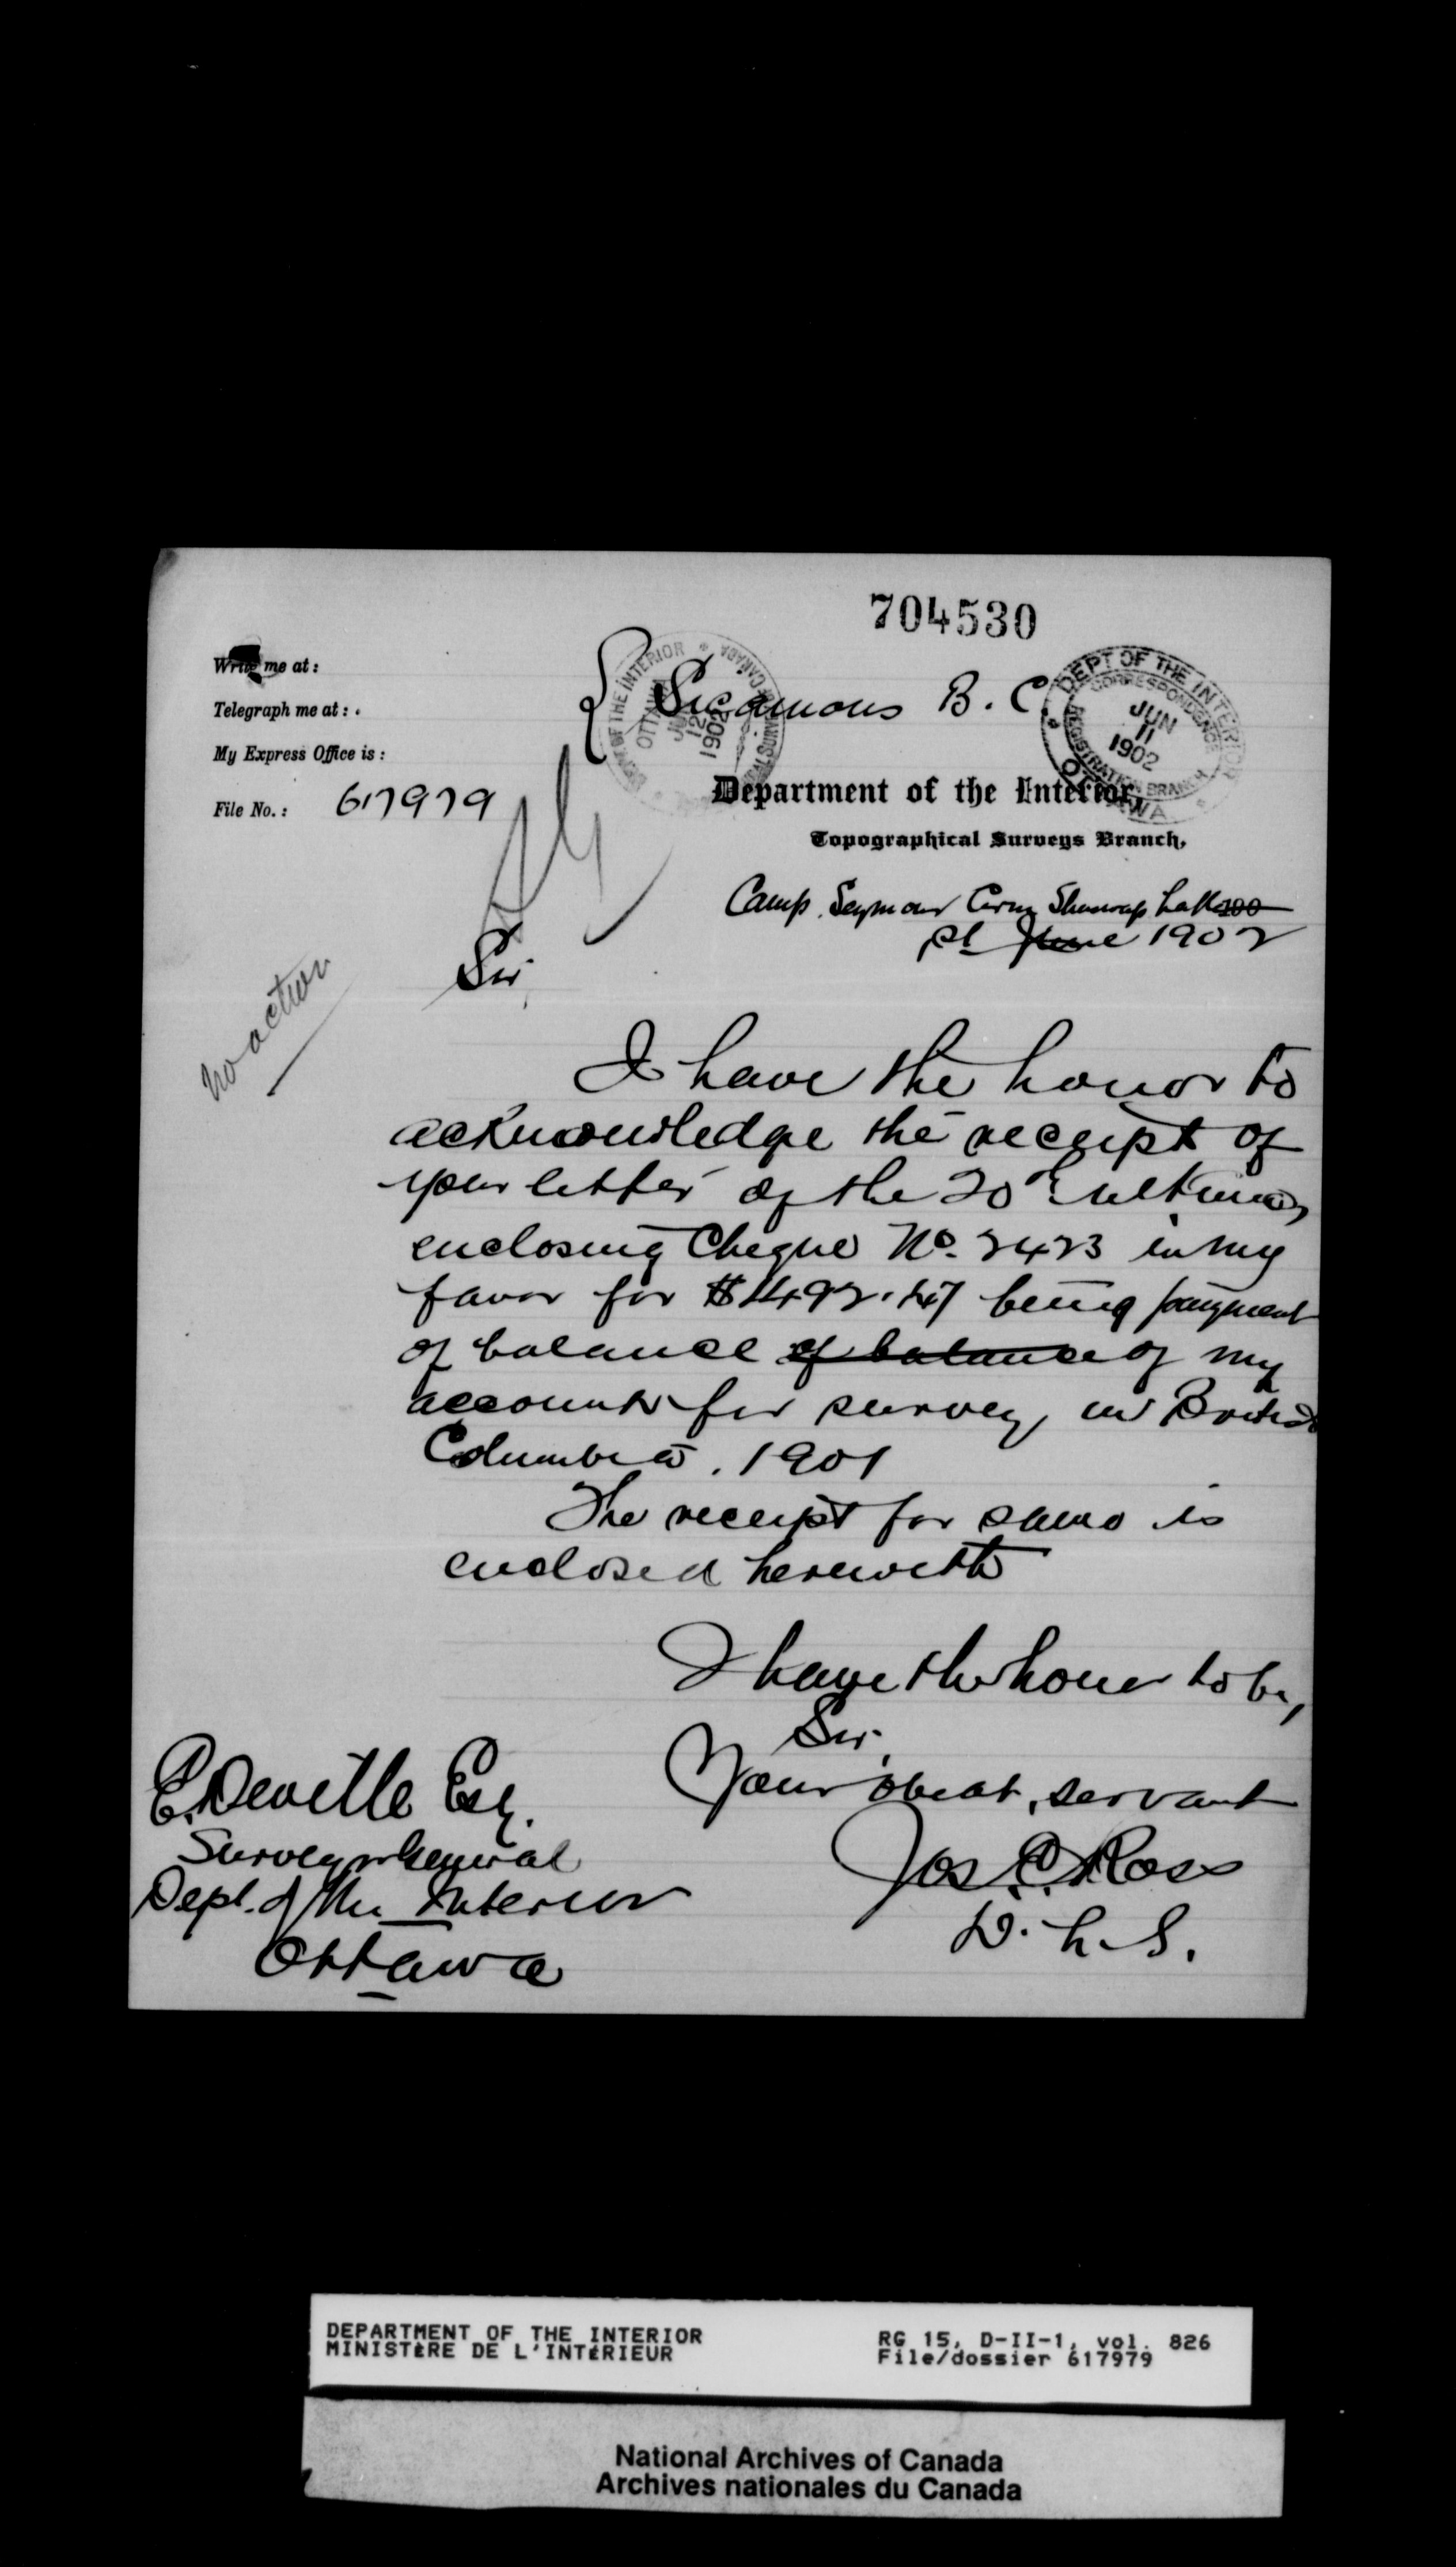 704530
Write me at :
Telegraph me at :
My Express Office is :
Sicamous B. C.
DEPT OF THE INTERIOR
OTTAWA
12
1902
DEPT OF THE INTERIOR
CORRESPONDENCE
JUN
11
1902
REGISTRATION BRANCH
OTTAWA
File No. : 617979
Department of the Interior,
Topographical Surveys Branch,
Camp, Seymour Arm Shuswap Lake 190
June 1902
no action
Sir,
I have the honor to
acknowledge the receipt of
your letter of the 20th ultimo,
enclosing Cheque No. 2423 in my
favor for $1492.47 being payment
of balance of balance of my
account for survey, in British
Columbia, 1901
The receipt for same is
enclosed herewith
I have the honor to be,
Sir,
Your obedt, servant
Jos. E. Ross
D. L. S.
E. Deville Esq.
Surveyor General
Dept. of the Interior
Ottawa
DEPARTMENT OF THE INTERIOR
MINISTÈRE DE L'INTÉRIEUR
RG 15, D-II-1, vol. 826
File/dossier 617979
National Archives of Canada
Archives nationales du Canada